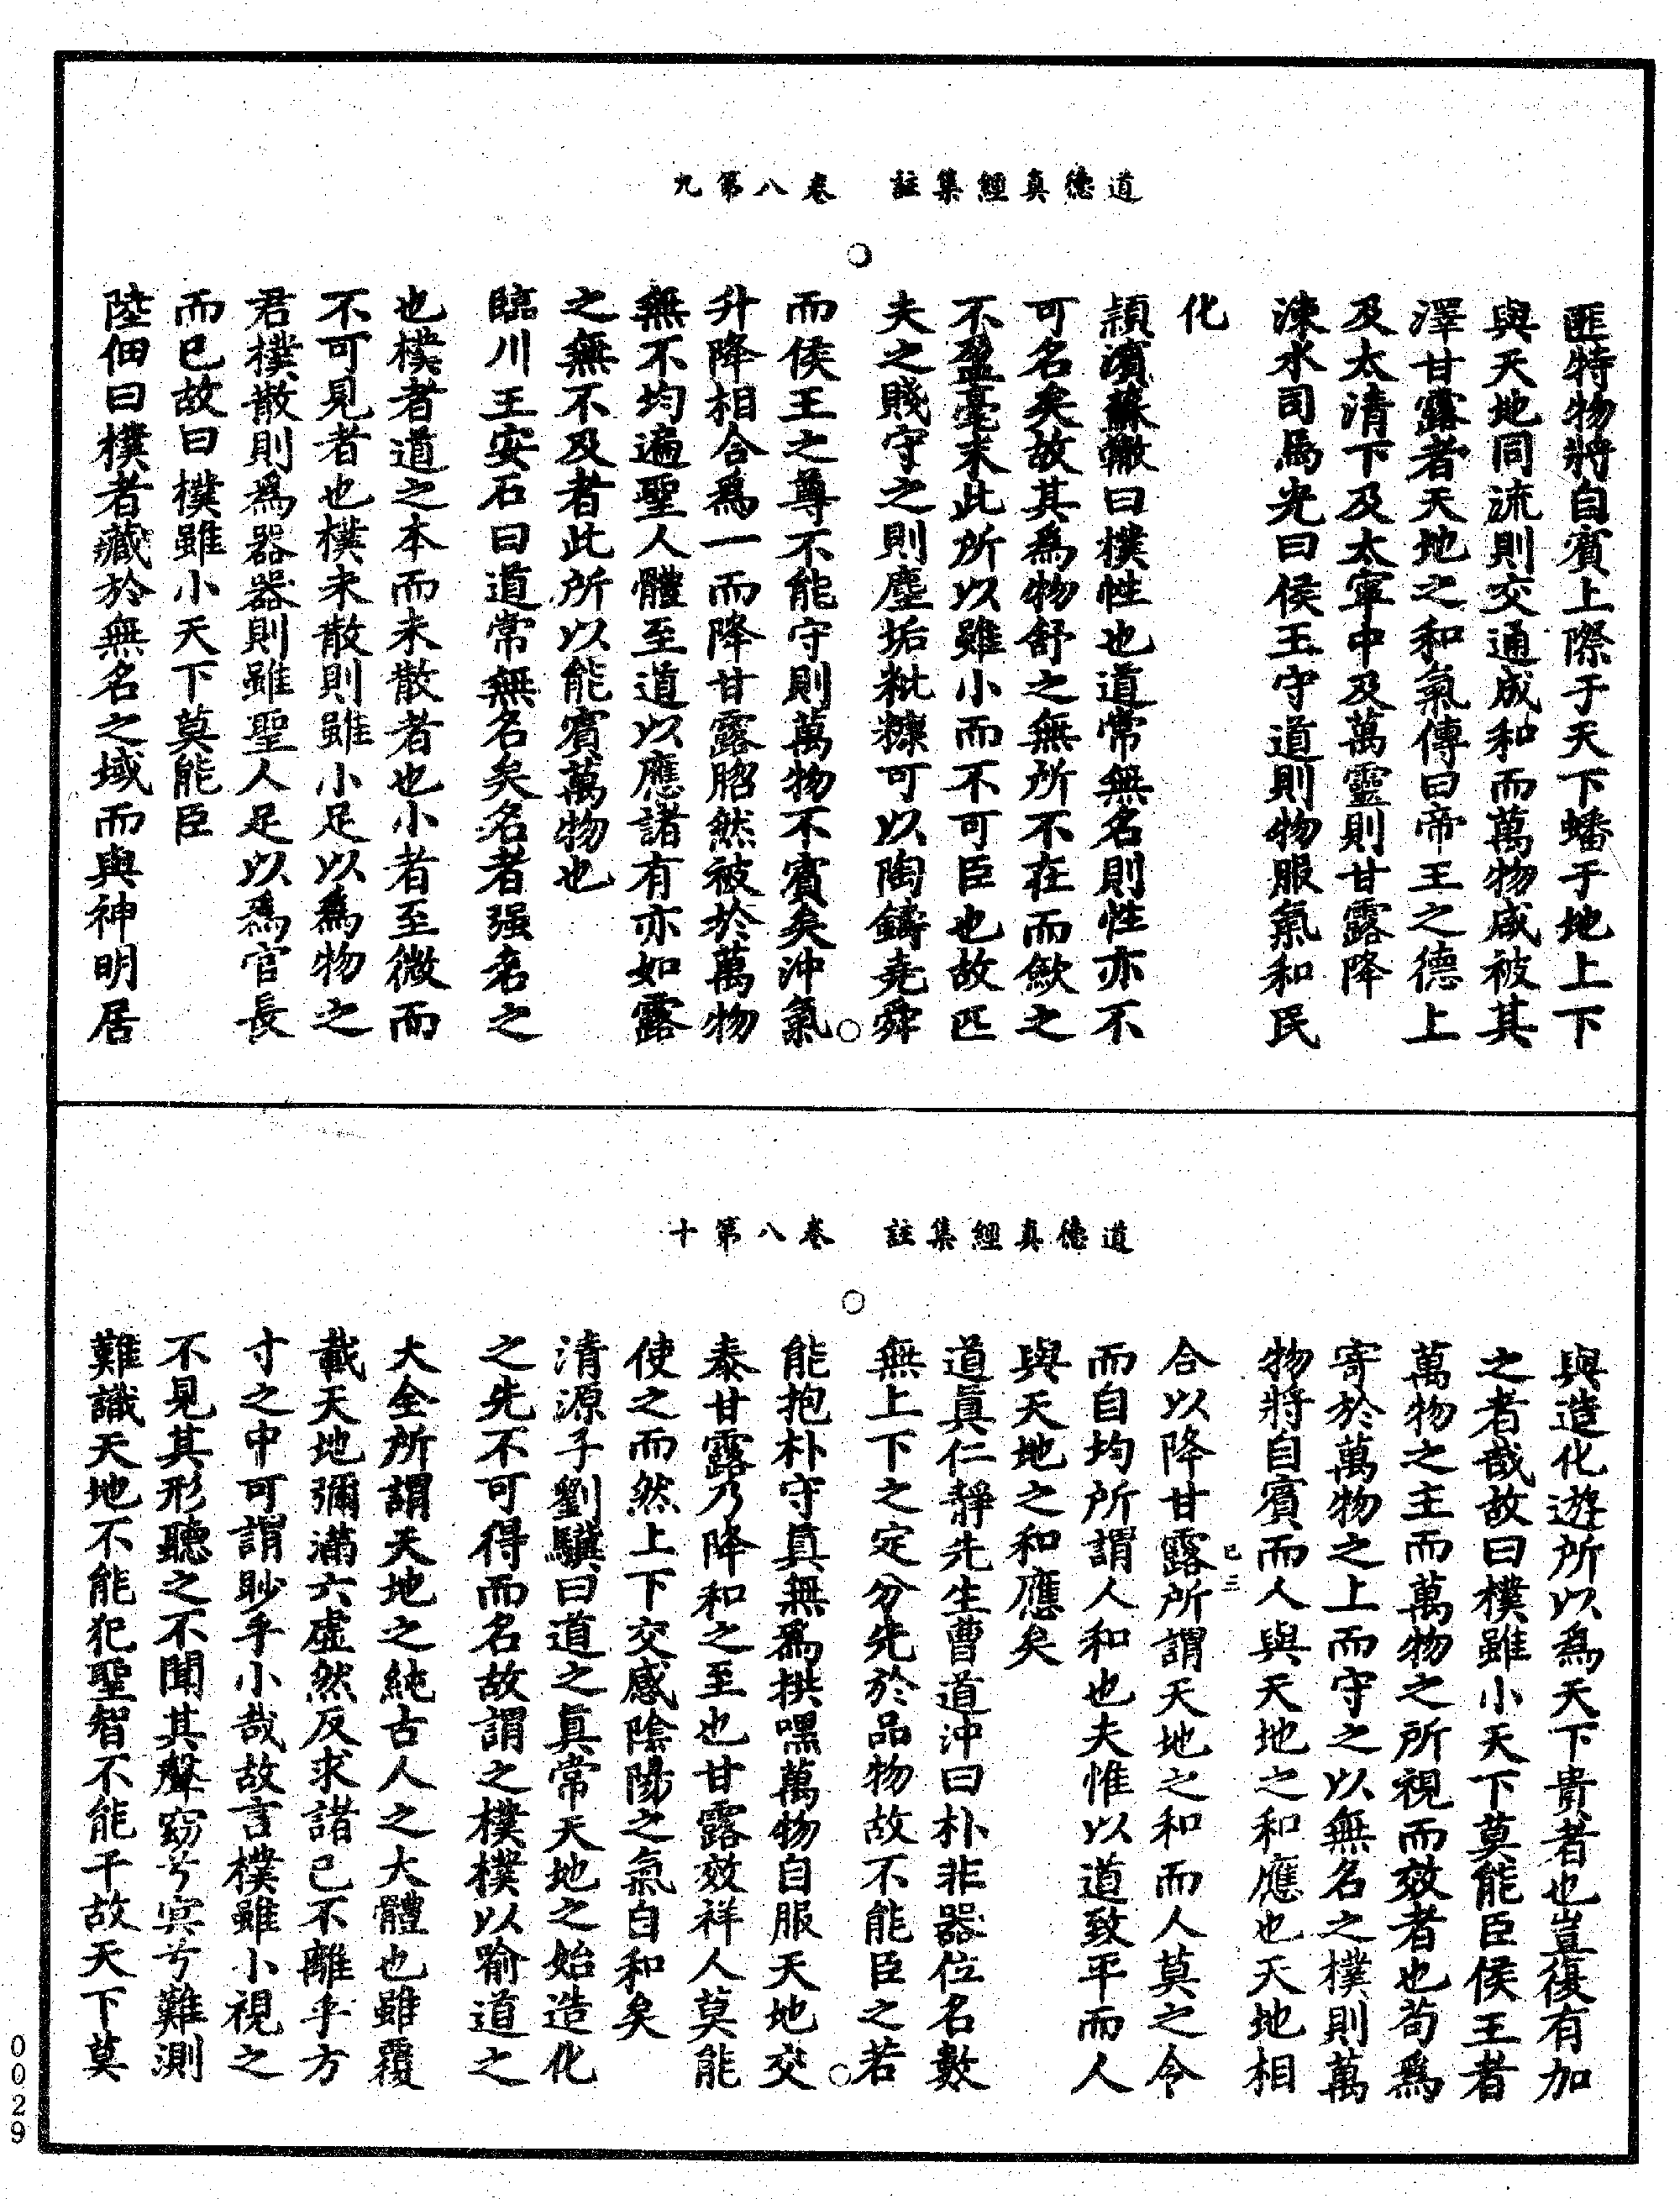 道德真經集註　卷八第九
匪特物將自賓上際于天下蟠于地上下
與天地同流則交通成和而萬物咸被其
澤甘露者天地之和氣傳曰帝王之德上
及太清下及太寧中及萬靈則甘露降
涑水司馬光曰侯王守道則物服氣和民
化
頴濱蘇轍曰樸性也道常無名則性亦不
可名矣故其為物舒之無所不在而斂之
不盈毫末此所以雖小而不可臣也故匹
夫之賤守之則塵垢粃糠可以陶鑄堯舜
而侯王之尊不能守則萬物不賓矣沖氣
升降相合為一而降甘露脗然被於萬物
無不均遍聖人體至道以應諸有亦如露
之無不及者此所以能賓萬物也
臨川王安石曰道常無名矣名者强名之
也樸者道之本而未散者也小者至微而
不可見者也樸未散則雖小足以為物之
君樸散則為器器則雖聖人足以為官長
而已故曰樸雖小天下莫能臣
陸佃曰樸者藏於無名之域而與神明居
道德真經集註　卷八第十
與造化遊所以為天下貴者也豈復有加
之者哉故曰樸雖小天下莫能臣侯王者
萬物之主而萬物之所視而效者也苟為
寄於萬物之上而守之以無名之樸則萬
物將自賓而人與天地之和應也天地相
合以降甘露所謂天地之和而人莫之令
而自均所謂人和也夫惟以道致平而人
與天地之和應矣
道真仁靜先生曹道沖曰朴非器位名數
無上下之定分先於品物故不能臣之若
能抱朴守真無為拱嘿萬物自服天地交
泰甘露乃降和之至也甘露效祥人莫能
使之而然上下交感陰陽之氣自和矣
清源子劉驥曰道之真常天地之始造化
之先不可得而名故謂之樸樸以喻道之
大全所謂天地之純古人之大體也雖覆
載天地彌滿六虛然反求諸己不離乎方
寸之中可謂眇乎小哉故言樸雖小視之
不見其形聽之不聞其聲窈兮冥兮難測
難識天地不能犯聖智不能干故天下莫
己三
0029